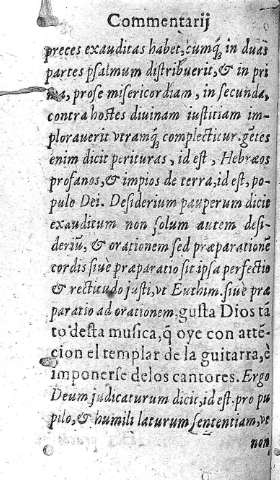 Commentarij
preces exauditas habet, cumq̃ in duas
partes psalmum distribuerit, & in pri
ma, prose misericordiam, in secunda,
contra hostes diuinam iustitiam im-
plorauerit vtramq; complectitur. getes
enim dicit perituras, id est, Hebræos
profanos, & impios de terra, id est, po-
pulo Dei. Desiderium pauperum dicit
exauditum non solum autem desi-
deriũ, & orationem sed præparationẽ
cordis siuè præparatio sit ipsa perfectio
& rectitudo justi, vt Euthim. siue præ
paratio ad orationem. gusta Dios tã
to desta musica, q̃ oye con attẽ-
cion el templar de la guitarra, é
imponerse delos cantores. Ergo
Deum judicaturum dicit, id est. pro pu
pilo, & humili laturum sententiam, vt
non